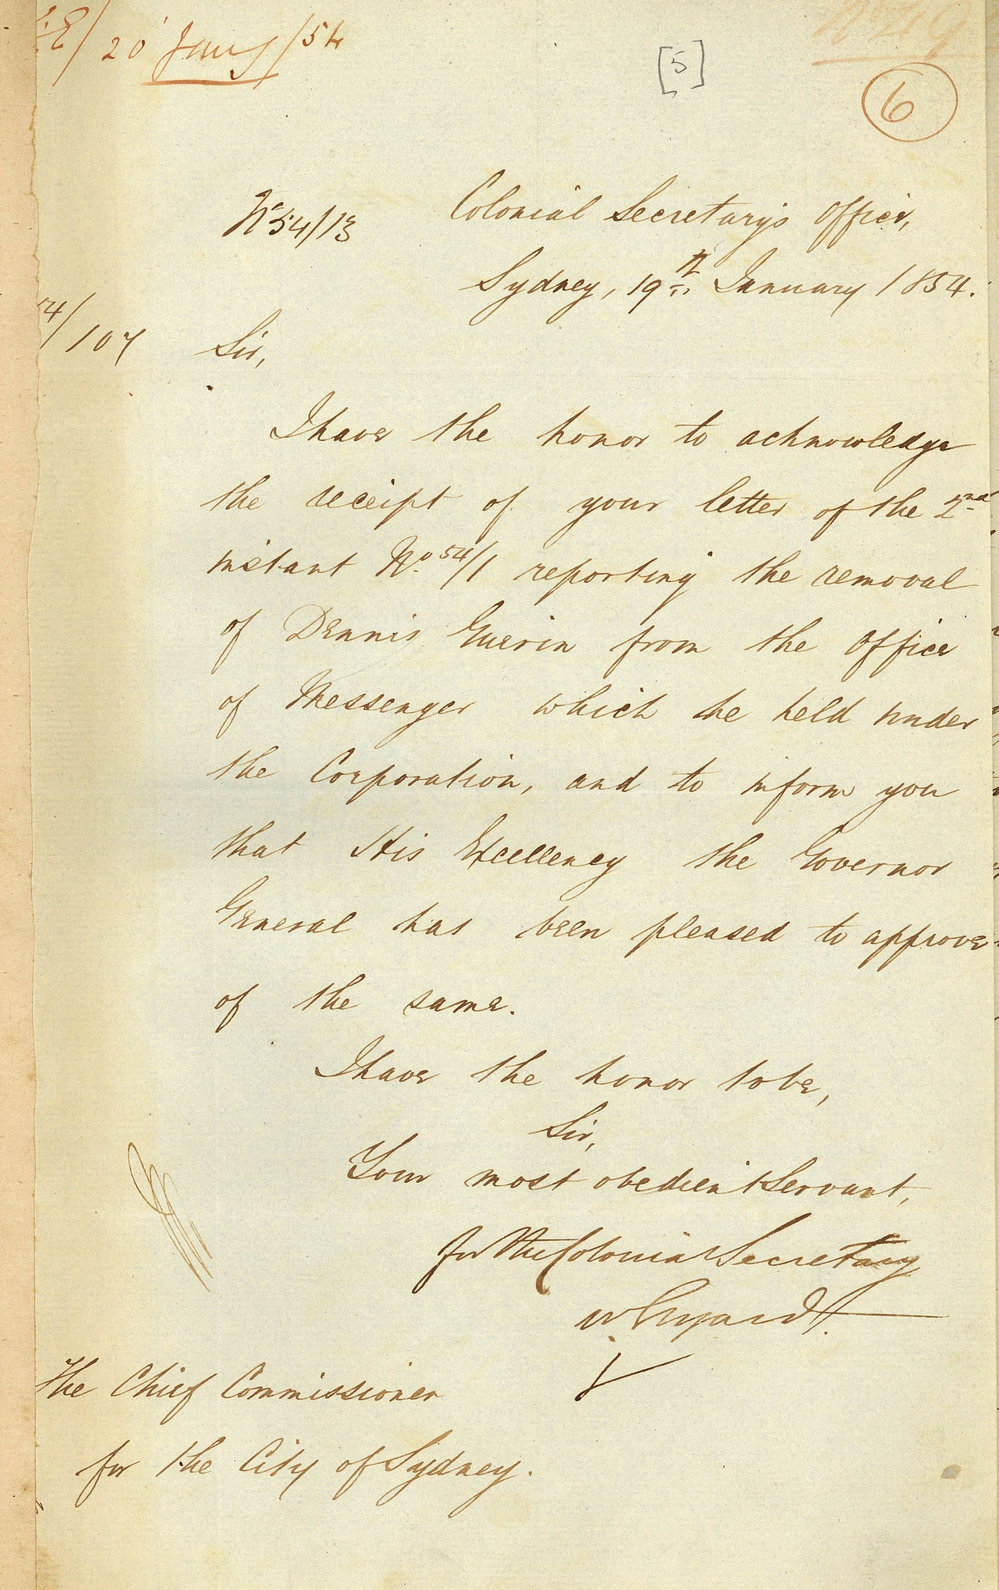 20 Jany/54
[5]
6
No 54/13
Colonial Secretary's Office,
Sydney, 19th January 1854.
/107
Sir,
I have the honor to acknowledge
the receipt of your letter of the 2nd
instant No. 54/1 reporting the removal
of Dennis Guerin from the Office
of Messenger which he held under
the Corporation, and to inform you
that His Excellency the Governor
General has been pleased to approve
of the same.
I have the honor to be,
Sir,
Your most obedient Servant,
for the Colonial Secretary
W. Elyard
The Chief Commissioner
for the City of Sydney.